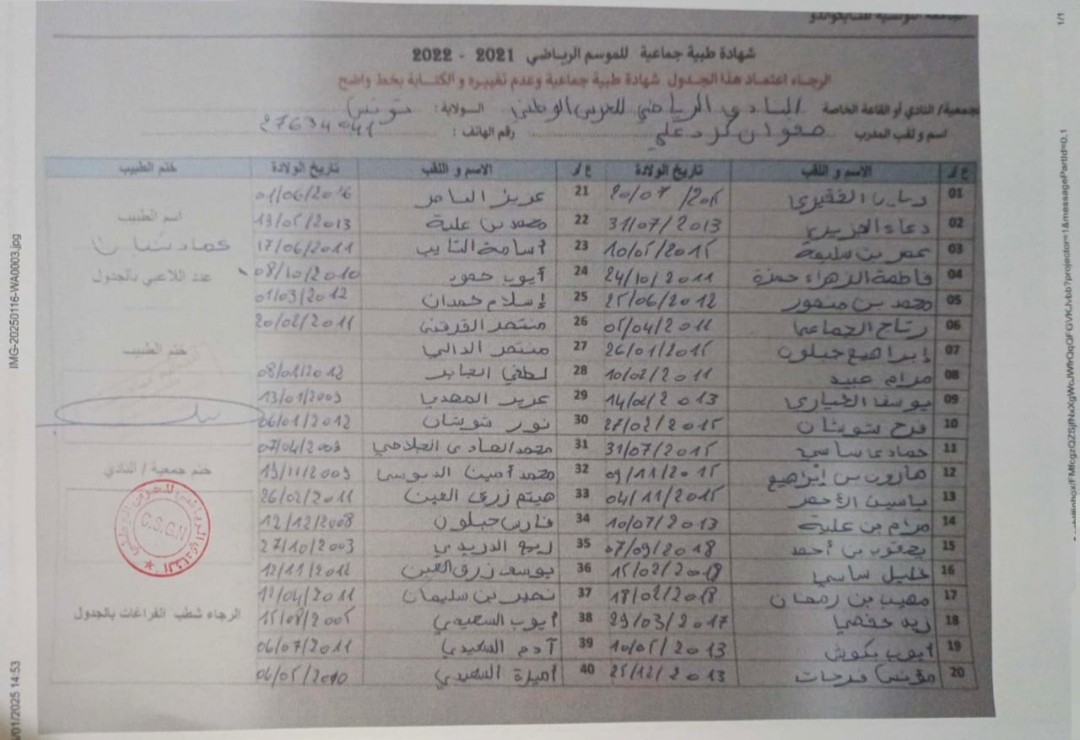 الجامعة التونسية للتايكواندو
شهادة طبية جماعية للموسم الرياضي 2021 - 2022
الرجاء اعتماد هذا الجدول شهادة طبية جماعية وعدم تغييره والكتابة بخط واضح
جمعية/ النادي أو القاعة الخاصة النادي الرياضي للحرس الوطني الولاية: تونس
اسم و لقب المدرب صفوان كردعلي رقم الهاتف: 27634041
ع/ر الاسم و اللقب تاريخ الولادة ع/ر الاسم و اللقب تاريخ الولادة ختم الطبيب
01 21 عزيز 01/06/2016
02 دعاء 31/07/2013 22 محمد بن علية 13/05/2013
03 عمر بن سليمة 10/05/2015 23 أسامة التايب 17/06/2011
04 فاطمة الزهراء حمزة 24/10/2011 24 أيوب حمود 08/10/2010
05 محمد بن منصور 25/06/2012 25 إسلام حمدان 01/03/2012
06 رتاج 05/04/2011 26 منتصر 20/02/2011
07 إبراهيم جبلون 26/01/2015 27 منتصر الدالي
08 مرام عبيد 10/02/2011 28 لطفي 08/01/2012
09 يوسف الخياري 14/02/2013 29 عزيز المهدي 13/01/2009
10 فرح شويشان 27/02/2015 30 نور شويشان 06/01/2012
11 حمادي ساسي 31/07/2015 31 محمد الهادي 07/04/2009
12 هارون بن إبراهيم 09/11/2015 32 محمد أمين 19/11/2009
13 ياسين الأحمر 04/11/2015 33 هيثم زرق العين 26/02/2011
14 مرام بن علية 10/07/2013 34 فارس جبلون 12/12/2008
15 يعقوب بن أحمد 07/09/2018 35 ربح الدريدي 27/10/2003
16 خليل ساسي 15/02/2018 36 يوسف زرق العين 12/11/2012
17 مهيب بن رمضان 18/02/2018 37 نصير بن سليمان 12/04/2011
18 زيد حفصي 29/03/2017 38 أيوب السعيدي 15/08/2005
19 أيوب بكوش 10/05/2013 39 آدم السعيدي 06/07/2011
20 مؤنس فرحات 25/12/2013 40 أميرة السعيدي 06/05/2010
اسم الطبيب
عماد شعبان
عدد اللاعبي بالجدول
ختم الطبيب
ختم جمعية / النادي
C.S.G.N
الرجاء شطب الفراغات بالجدول
IMG-20250116-WA0003.jpg
/01/2025 14:53
1/1